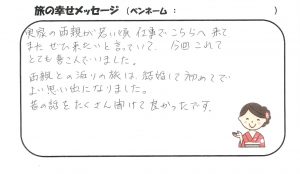 旅の幸せメッセージ (ペンネーム: )
実家の両親が若い頃 仕事でこちらへ来て
また ぜひ来たいと言っていて、今回これて
とても喜こんでいました。
両親との泊りの旅は、結婚して初めてで
よい思い出になりました。
昔の話をたくさん聞けて良かったです。